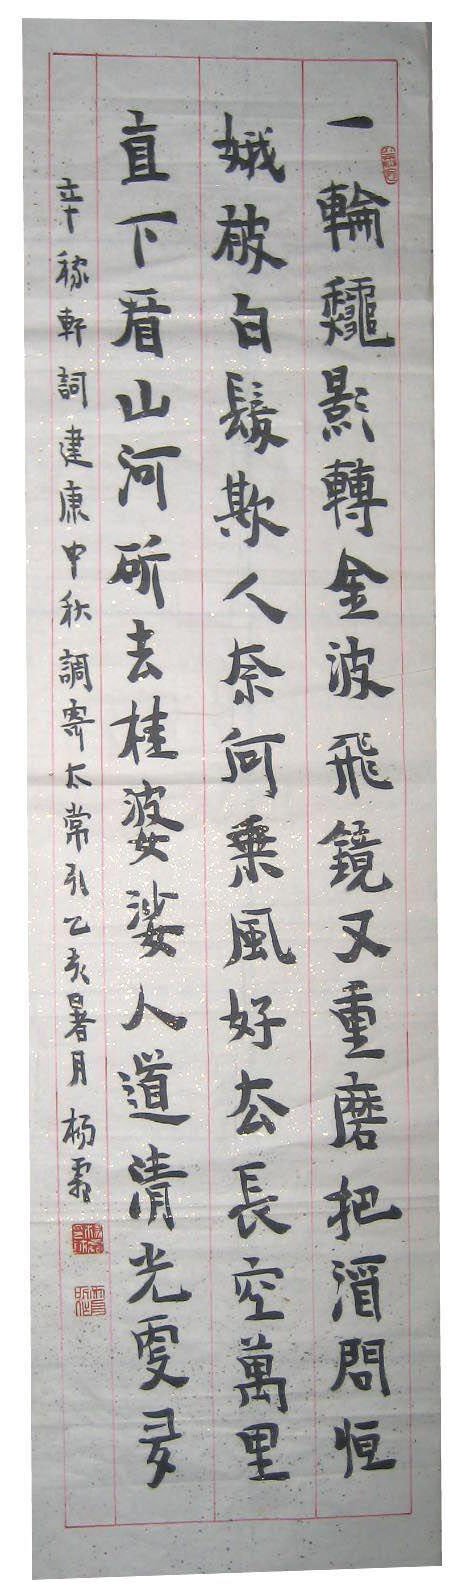 一輪龝影轉金波飛鏡又重磨把酒問恒
娥被白髮欺人奈何乘風好去長空萬里
直下看山河斫去桂婆娑人道清光更多
辛稼軒詞建康中秋調寄太常引乙亥暑月 杨